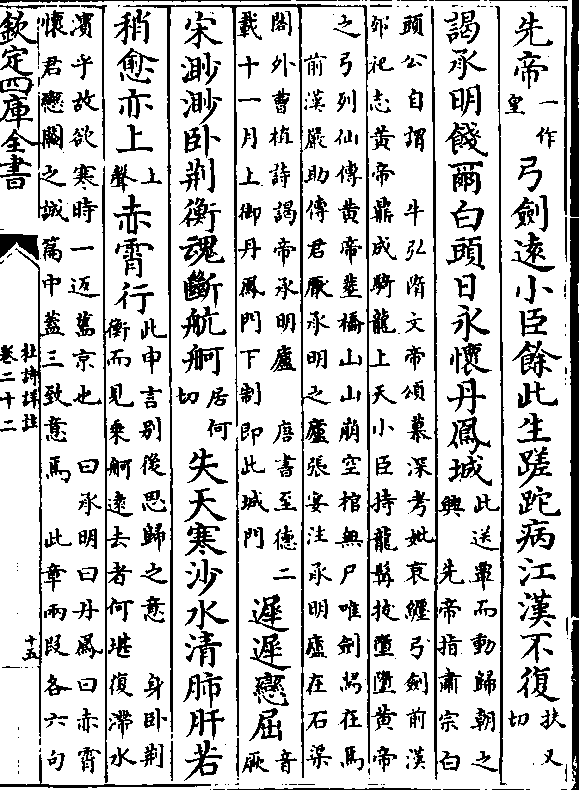 先帝一作皇弓劍遠小臣餘此生蹉跎病江漢不復扶又切
謁承明餞爾白頭日永懷丹鳳城此送覃而動歸朝之
興　先帝指肅宗白
頭公自謂　牛弘隋文帝頌慕深考妣哀纏弓劍前漢
郊祀志黃帝鼎成騎龍上天小臣持龍髯拔墮墮黃帝
之弓列仙傳黃帝塟橋山山崩空棺無尸唯劍舄在焉
前漢嚴助傳君厭承明之廬張安注承明廬在石梁
閣外曹植詩謁帝承明廬　唐書至德二
載十一月上御丹鳳門下制即此城門
遲遲戀屈音厥
宋渺渺卧荆衡魂斷航舸居何切失天寒沙水清肺肝若
稍愈亦上上聲赤霄行此申言别後思歸之意　身卧荆
衡而見乘舸遠去者何堪復滯水
濱乎故欲寒時一返舊京也　曰承明曰丹鳳曰赤霄
懷君戀闕之誠篇中蓋三致意焉　此章兩段各六句
欽定四庫全書
杜詩詳註
卷二十二
十五